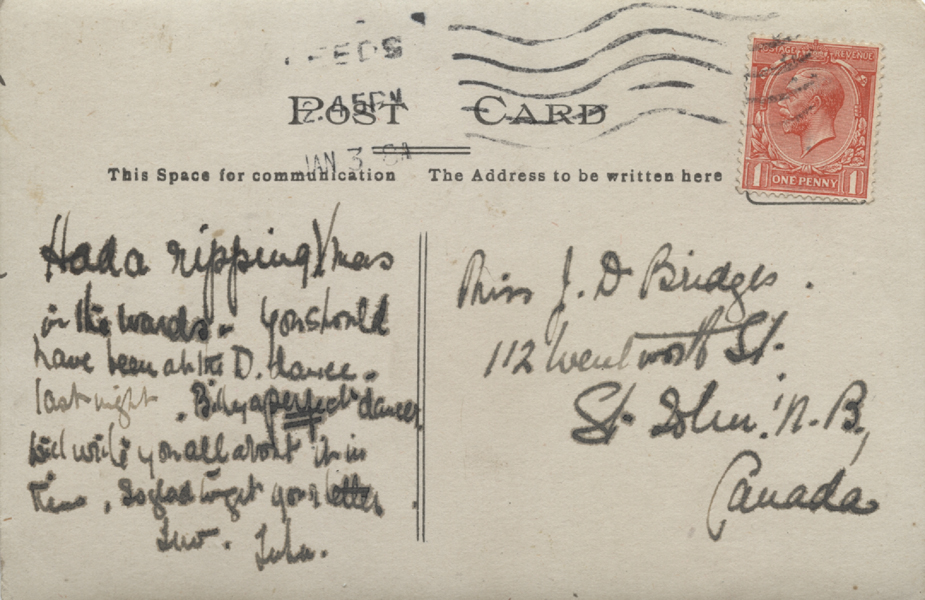 LEEDS
2.45 PM
JAN 3
POST CARD
This Space for communication
The Address to be written here
POSTAGE REVENUE
1 ONE PENNY 1
Had a ripping Xmas
in the wards. You should
have been at the D. dance
last night. Billy a perfect dancer
will write you all about it in
time. So glad to get your letter.
Miss J. D Bridges.
112 Wentworth St.
St. John. N. B,
Canada